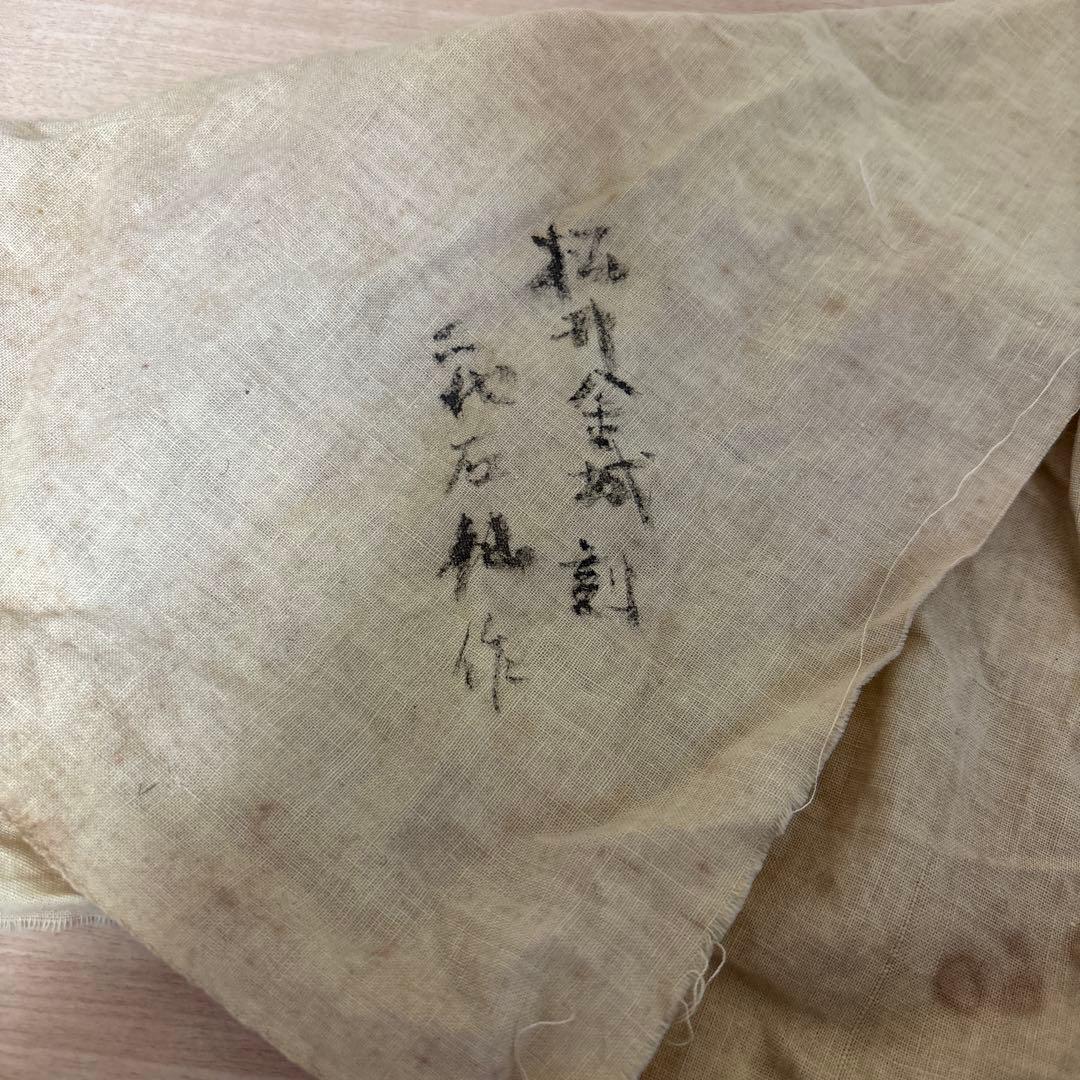 井金城刻
二代石作